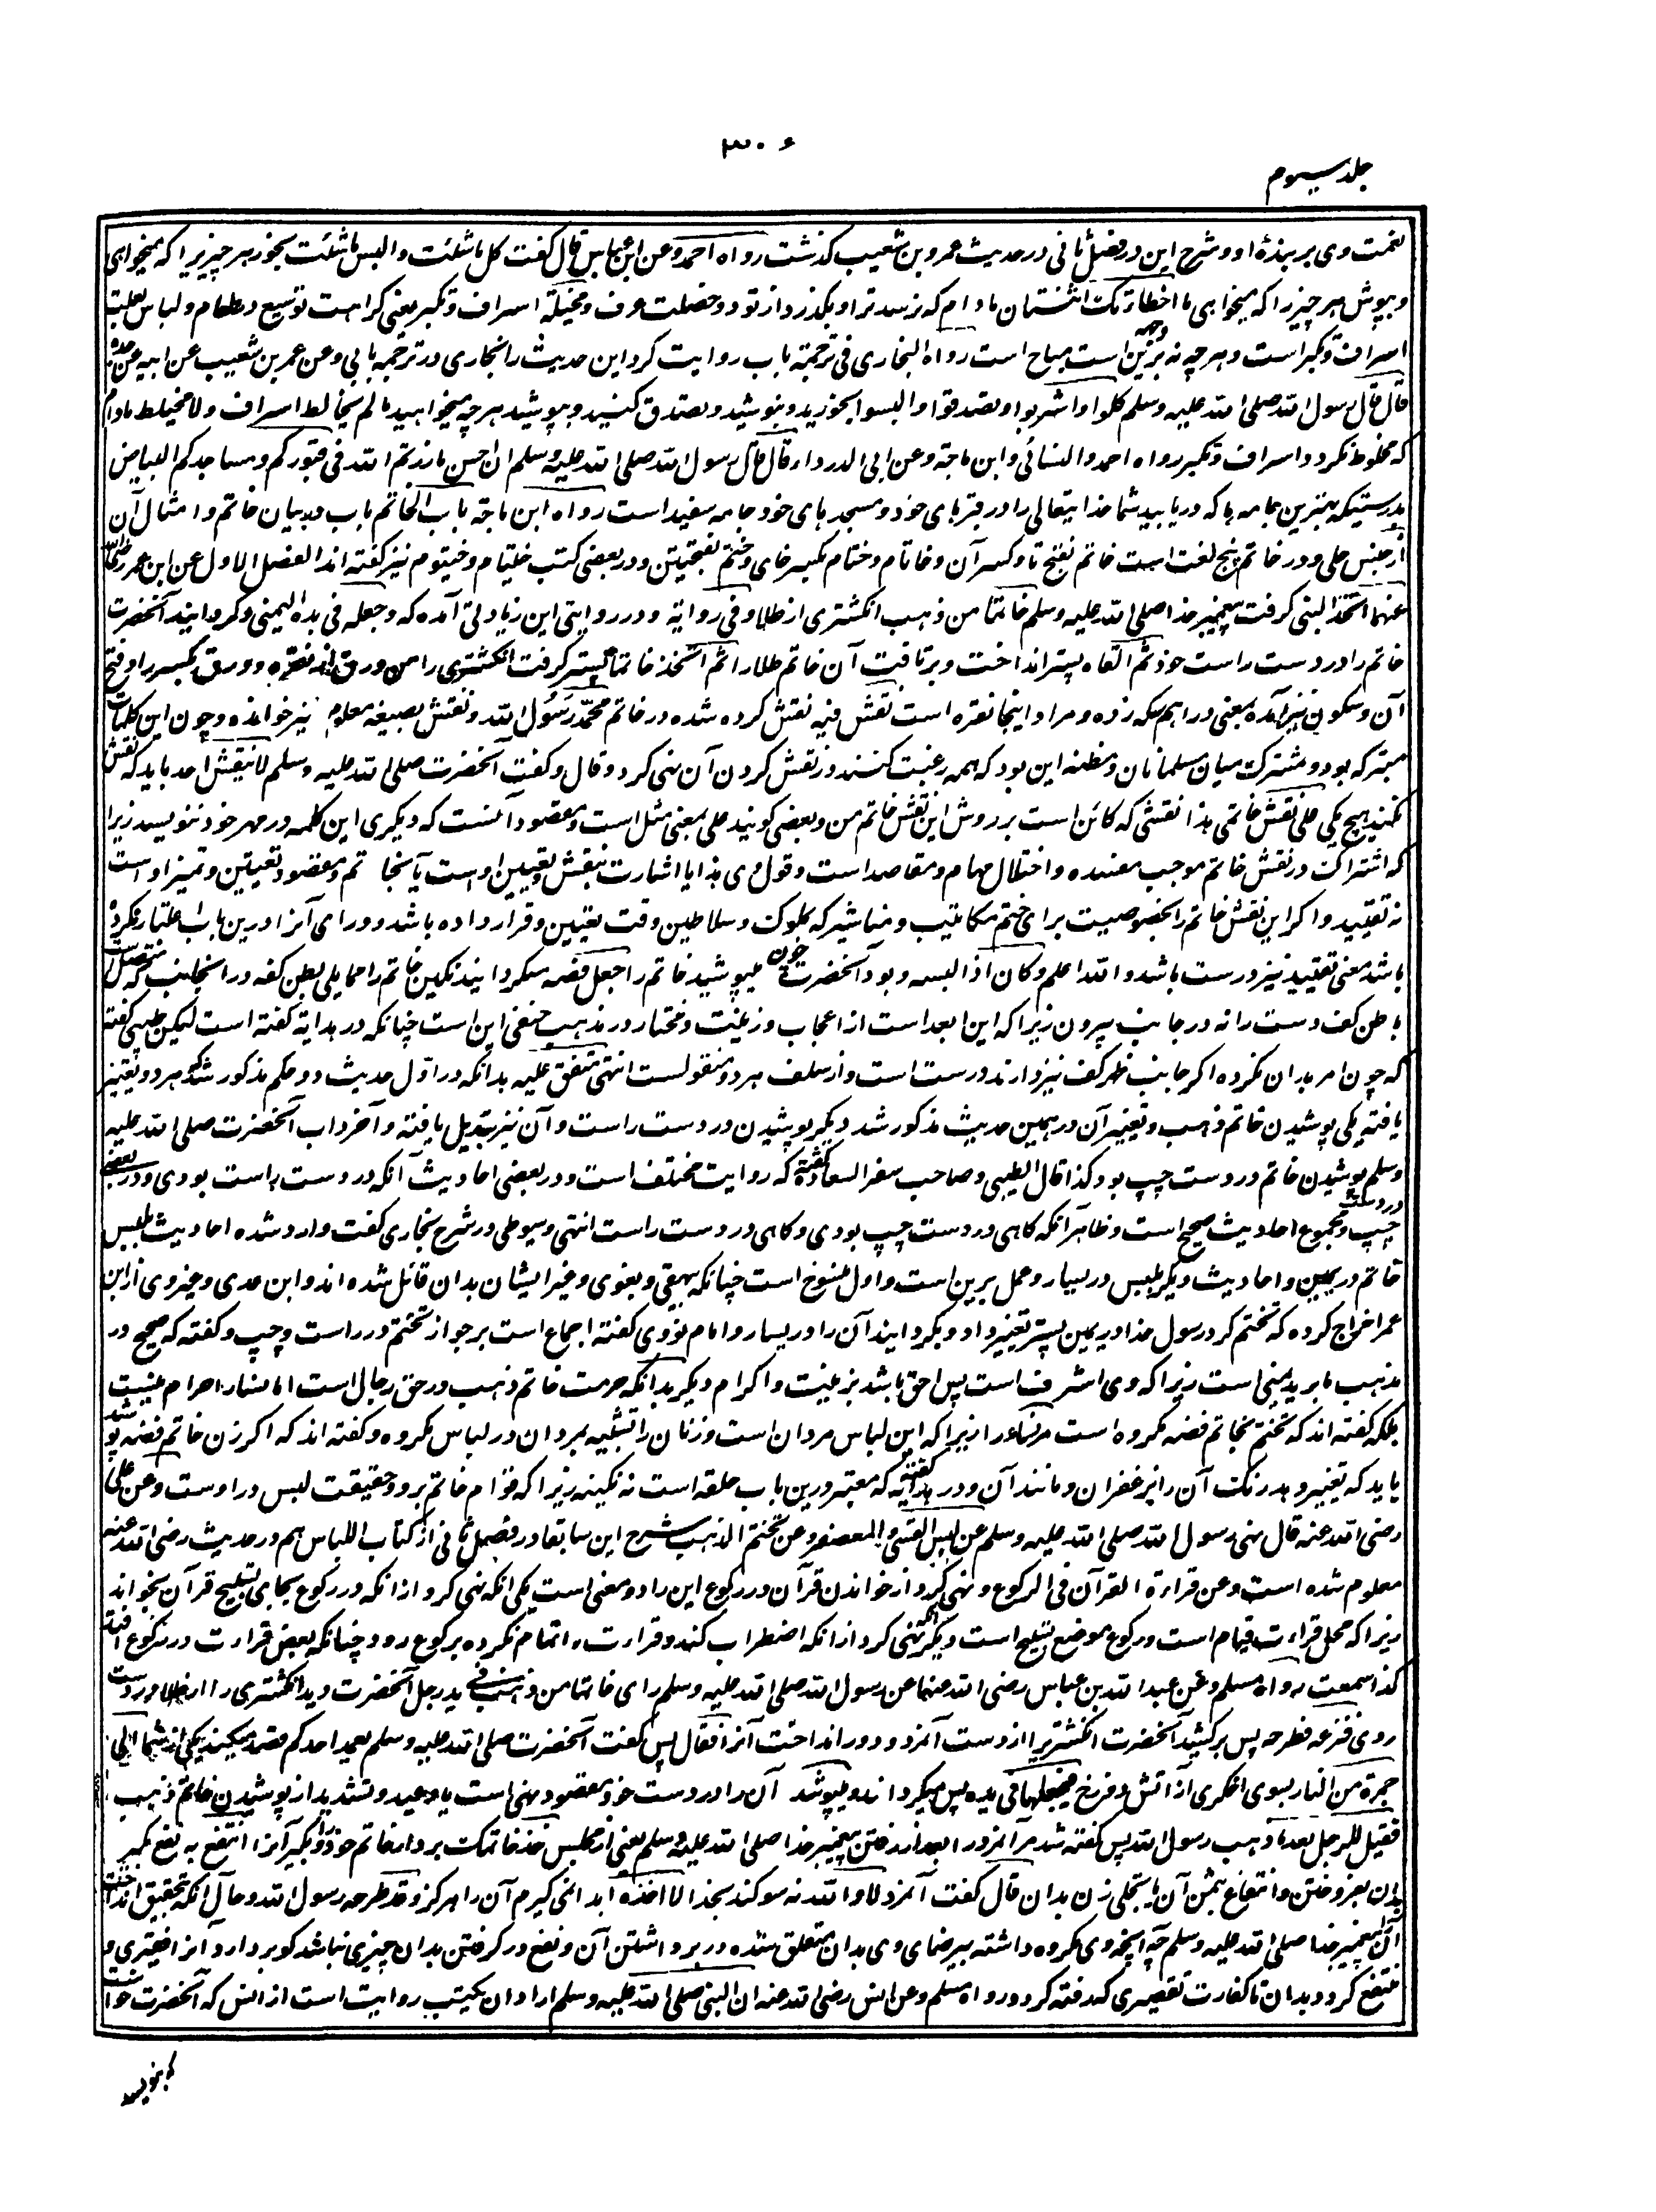 ۳۰۶
جلد سیوم
نعمت وی بر بندۀ او و شرح این در فصل ثانی در حدیث عمرو بن شعیب گذشت رواه احمد وعن ابن عباس قال گفت کل ما شئت والبس ما شئت بخور هر چیزیرا که میخواهی
و بپوش هر چیز را که میخواهی ما اخطأتک اثنتان مادام که نرسد ترا و بگذرد از تو دو خصلت سرف ومخیلة اسراف و تکبر یعنی کراهت توسیع در طعام و لباس بعلت
اسراف و تکبر است و هر چه نه برین وجه است مباح است رواه البخاری فی ترجمة باب روایت کرد این حدیث را بخاری در ترجمه بابی وعن عمرو بن شعیب عن ابیه عن جده
قال قال رسول الله صلی الله علیه وسلم کلوا واشربوا وتصدقوا والبسوا بخورید و بنوشید و تصدق کنید و بپوشید هر چه میخواهید ما لم یخالط اسراف ولا مخیلة مادام
که مخلوط نگردد اسراف و تکبر رواه احمد والنسائی وابن ماجة وعن ابی الدرداء قال قال رسول الله صلی الله علیه وسلم ان احسن ما زرتم الله فی قبورکم ومساجدکم البیاض
بدرستیکه بهترین جامه ها که دریابید شما خدایتعالی را در قبرهای خود و مسجدهای خود جامه سفید است رواه ابن ماجة باب الخاتم باب در بیان خاتم و امثال آن
از جنس حلی و در خاتم پنج لغت است خاتم بفتح تا و کسر آن و خاتام و ختام بکسر خای و ختم بفتحتین و در بعضی کتب خیتام و خیتوم نیز گفته اند الفصل الاول عن ابن عمر رضی الله
عنهما اتخذ النبی گرفت پیغمبر خدا صلی الله علیه وسلم خاتما من ذهب انگشتری از طلا وفی روایة و در روایتی این زیادتی آمده که وجعله فی یده الیمنی و گردانید آنحضرت
خاتم را در دست راست خود ثم القاه پستر انداخت و برتافت آن خاتم طلا را ثم اتخذ خاتما پستر گرفت انگشتری را من ورق از نقره و ورق بکسر را و فتح
آن و سکون نیز آمده بمعنی دراهم سکه زده و مراد اینجا نقره است نقش فیه نقش کرده شده در خاتم محمد رسول الله و نقش بصیغه معلوم نیز خوانده و چون این کلمات
متبرکه بود و مشترک میان مسلمانان و مظنه این بود که همه رغبت کنند در نقش کردن آن نهی کرد و قال و گفت آنحضرت صلی الله علیه وسلم لا ینقش احد باید که نقش
نکند هیچ یکی علی نقش خاتمی هذا نقشی که کائن است بر روش این نقش خاتم من و بعضی گویند علی بمعنی مثل است و مقصود آنست که دیگری این کلمه در مهر خود ننویسد زیرا
که اشتراک در نقش خاتم موجب مفسده و اختلال مهام و مقاصد است و قول وی هذا یا اشارت بنقش و تعیین اوست یا بخاتم و مقصود تعیین و تمیز اوست
نه تقیید و اگر این نقش خاتم را بخصوصیت برای ختم مکاتیب و مناشیر که بملوک و سلاطین وقت تعیین و قرار داده باشد و ورای آنرا درین باب اعتبار نکرده
باشد معنی تقیید نیز درست باشد و الله اعلم وکان اذا لبسه و بود آنحضرت چون میپوشید خاتم را جعل فصه میگردانید نگین خاتم را مما یلی بطن کفه در آنجانب که متصل است
باطن کف دست را نه در جانب بیرون زیرا که این ابعد است از اعجاب و زینت و مختار در مذهب حنفی این است چنانکه در هدایة گفته است لیکن طیبی گفته
که چون امر بدان نکرده اگر جانب ظهر کف نیز دارند درست است و از سلف هر دو منقولست انتهی متفق علیه بدانکه در اول حدیث دو حکم مذکور شد که هر دو تغییر
یافته یکی پوشیدن خاتم ذهب و تغییر آن در همین حدیث مذکور شد دیگر پوشیدن در دست راست و آن نیز تبدیل یافته و آخر داب آنحضرت صلی الله علیه
وسلم پوشیدن خاتم در دست چپ بود کذا قال الطیبی و صاحب سفر السعادة گفته که روایت مختلف است و در بعضی احادیث آنکه در دست راست بودی و در بعضی
در دست چپ و مجموع احادیث صحیح است و ظاهر آنکه گاهی در دست چپ بودی و گاهی در دست راست انتهی و سیوطی در شرح بخاری گفت وارد شده احادیث بلبس
خاتم در یمین و احادیث دیگر بلبس در یسار و عمل برین است و اول منسوخ است چنانکه بیهقی و بغوی و غیر ایشان بدان قائل شده اند و ابن عدی و غیر وی از ابن
عمر اخراج کرده که تختم کرد رسول خدا در یمین پستر تغییر داد و بگردانید آن را در یسار و امام نووی گفته اجماع است بر جواز تختم در راست و چپ و گفته که صحیح در
مذهب ما بر ید یمنی است زیرا که وی اشرف است پس احق باشد بزینت و اکرام دیگر بدانکه حرمت خاتم ذهب در حق رجال است اما نساء را حرام نیست
بلکه گفته اند که تختم بخاتم فضه مکروه است مر نساء را زیرا که این لباس مردان است و زنان را تشبیه بمردان در لباس مکروه و گفته اند که اگر زن خاتم فضه پوشد
باید که تغییر دهد رنگ آن را بزعفران و مانند آن و در هدایه گفته که معتبر درین باب حلقه است نه نگینه زیرا که قوام خاتم بر و حقیقت لبس در اوست وعن علی
رضی الله عنه قال نهی رسول الله صلی الله علیه وسلم عن لبس القسی والمعصفر وعن تختم الذهب شرح این سابقا در فصل ثانی از کتاب اللباس هم در حدیث رضی الله عنه
معلوم شده است وعن قراءة القرآن فی الرکوع و نهی کرد از خواندن قرآن در رکوع این را دو معنی است یکی انکه نهی کرد از انکه در رکوع بجای تسبیح قرآن بخواند
زیرا که محل قراءت قیام است و رکوع موضع تسبیح است دیگر آنکه نهی کرد از انکه اضطراب کند و قراءت را اتمام نکرده برکوع رود چنانکه بعض قراءت در رکوع افتد
کذا سمعت رواه مسلم وعن عبد الله بن عباس رضی الله عنهما عن رسول الله صلی الله علیه وسلم رای خاتما من ذهب فی ید رجل آنحضرت دید انگشتری را از طلا در دست
روی فنزعه فطرحه پس برکشید آنحضرت انگشتریرا از دست آنمرد و دور انداخت آنرا فقال پس گفت آنحضرت صلی الله علیه وسلم یعمد احدکم قصد میکند یکی از شما الی
جمرة من النار بسوی اخگری از آتش دوزخ فیجعلها فی یده پس میگرداند و میپوشد آن را در دست خود مقصود نهی است با وعید و تشدید از پوشیدن خاتم ذهب
فقیل للرجل بعد ما ذهب رسول الله پس گفته شد مر آنمرد را بعد از رفتن پیغمبر خدا صلی الله علیه وسلم یعنی از مجلس خذ خاتمک بردار خاتم خود را و بگیر آنرا انتفع به نفع گیر
بدان بفروختن و انتفاع بثمن آن یا بتحلی زن بدان قال گفت آنمرد لا والله نه سوگند بخدا لا اخذه ابدا نمی گیرم آن را هرگز وقد طرحه رسول الله و حال آنکه تحقیق انداخت
آن را پیغمبر خدا صلی الله علیه وسلم چه آنچه وی مکروه داشته بیرضای وی بدان متعلق شده در برداشتن آن و نفع در گرفتن بدان چیزی نباشد گو بردارد آنرا فقیری و
منتفع گردد بدان تا کفارت تقصیری که رفته گردد رواه مسلم وعن انس رضی الله عنه ان النبی صلی الله علیه وسلم اراد ان یکتب روایت است از انس که آنحضرت خواست
که بنویسد